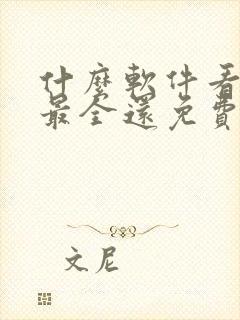 什麼軟件看
最全還免費
文尼